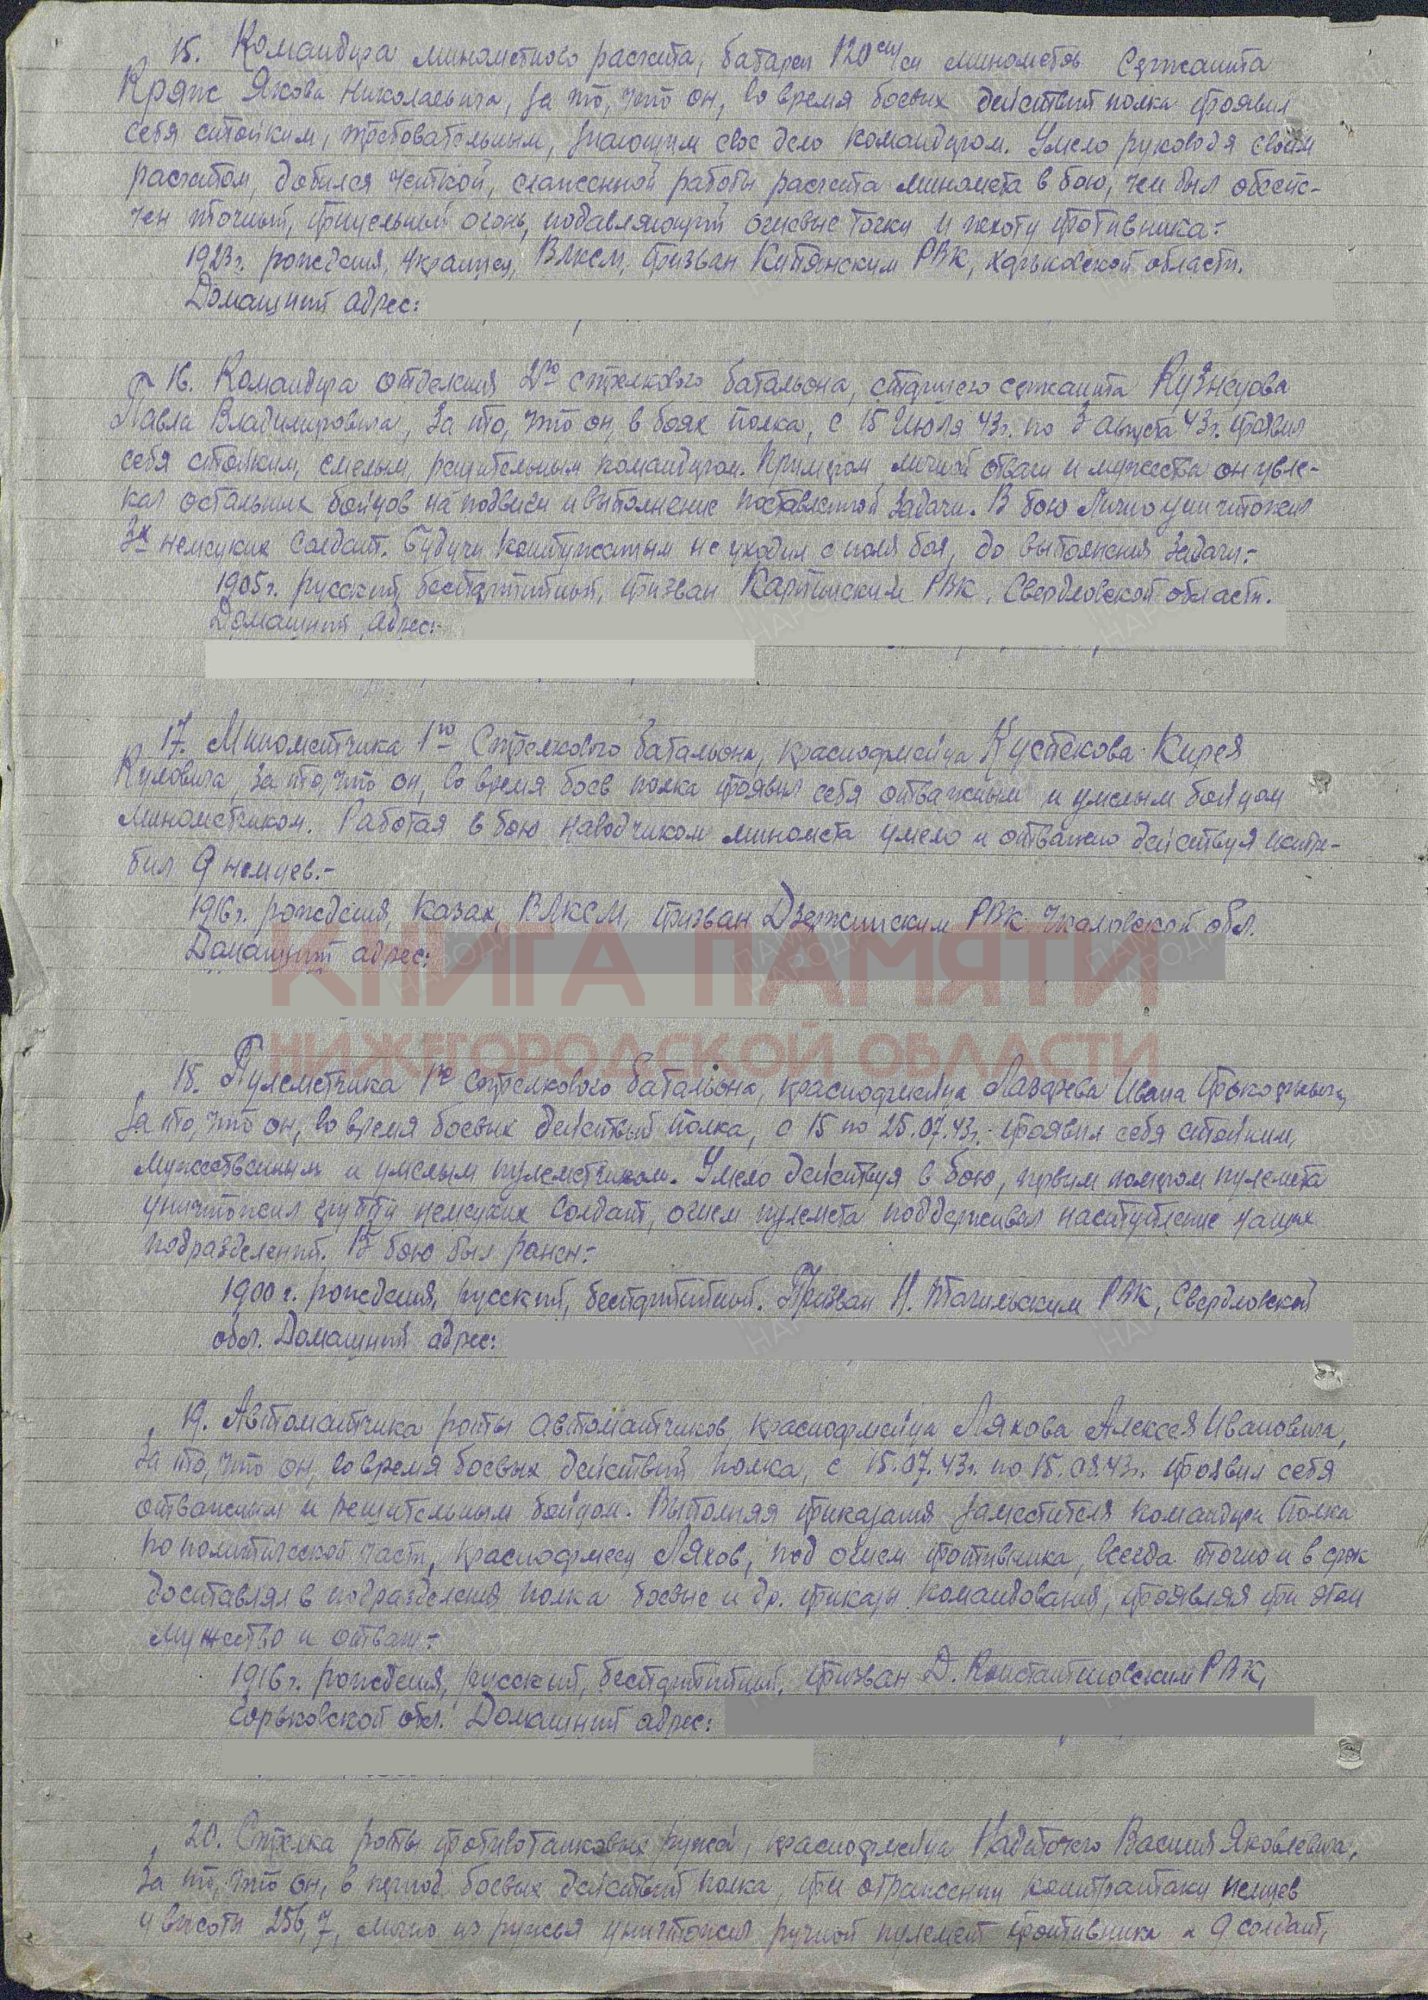 15. Командира минометного расчета, батареи 120 см/м минометов Сержанта
Кряж Якова Николаевича, за то, что он, во время боевых действий полка проявил
себя стойким, требовательным, знающим свое дело командиром. Умело руководя своим
расчетом, добился четкой, слаженной работы расчета миномета в бою, чем был обеспе-
чен точный, прицельный огонь, подавляющий огневые точки и пехоту противника:-
1923 г. рождения, украинец, ВЛКСМ, призван Купянским РВК, Харьковской области.
Домашний адрес:
16. Командира отделения 2го стрелкового батальона, старшего сержанта Кузнецова
Павла Владимировича, За то, что он, в боях полка, с 15 июля 43г. по 3 августа 43г. проявил
себя стойким, смелым, решительным командиром. Примером личной отваги и мужества он увле-
кал остальных бойцов на подвиги и выполнение поставленной задачи. В бою лично уничтожил
3х немецких солдат. Будучи контуженным не уходил с поля боя, до выполнения задачи:-
1905 г. русский, беспартийный, призван Карпинским РВК, Свердловской области.
Домашний адрес:-
17. Минометчика 1го Стрелкового батальона, красноармейца Кустекова Кирея
За то, что он, во время боев полка проявил себя отважным и умелым бойцом
минометчиком. Работая в бою наводчиком миномета умело и отважно действуя истре-
бил 9 немцев.-
1916 г. рождения, Казах, ВЛКСМ, призван Дзержинским РВК Чкаловской обл.
Домашний адрес:
КНИГА ПАМЯТИ
НИЖЕГОРОДСКОЙ ОБЛАСТИ
18. Пулеметчика 1го стрелкового батальона, красноармейца Лазарева Ивана Прокофьевича,
За то, что он, во время боевых действий полка, с 15 по 25.07.43г. проявил себя стойким,
мужественным и умелым пулеметчиком. Умело действуя в бою, первым номером пулемета
уничтожил группу немецких солдат, огнем пулемета поддерживал наступление наших
подразделений. В бою был ранен:-
1900 г. рождения, русский, беспартийный. Призван Н. Тагильским РВК, Свердловской
обл. Домашний адрес:
19. Автоматчика роты автоматчиков, красноармейца Ляхова Алексея Ивановича,
За то, что он, во время боевых действий полка, с 15.07.43г. по 15.08.43г. проявил себя
отважным и решительным бойцом. Выполняя приказания заместителя командира полка
по политической части, красноармеец Ляхов, под огнем противника, всегда точно и в срок
доставлял в подразделения полка боевые и др. приказы командования, проявляя при этом
мужество и отвагу:-
1916 г. рождения, русский, беспартийный, призван Д. Константиновским РВК,
Горьковской обл. Домашний адрес:
20. Стрелка роты противотанковых ружей, красноармейца Надточего Василия Яковлевича,
За то, что он, в период боевых действий полка, при отражении контратаки немцев
у высоты 256,7, лично из ружья уничтожил ручной пулемет противника и 9 солдат,